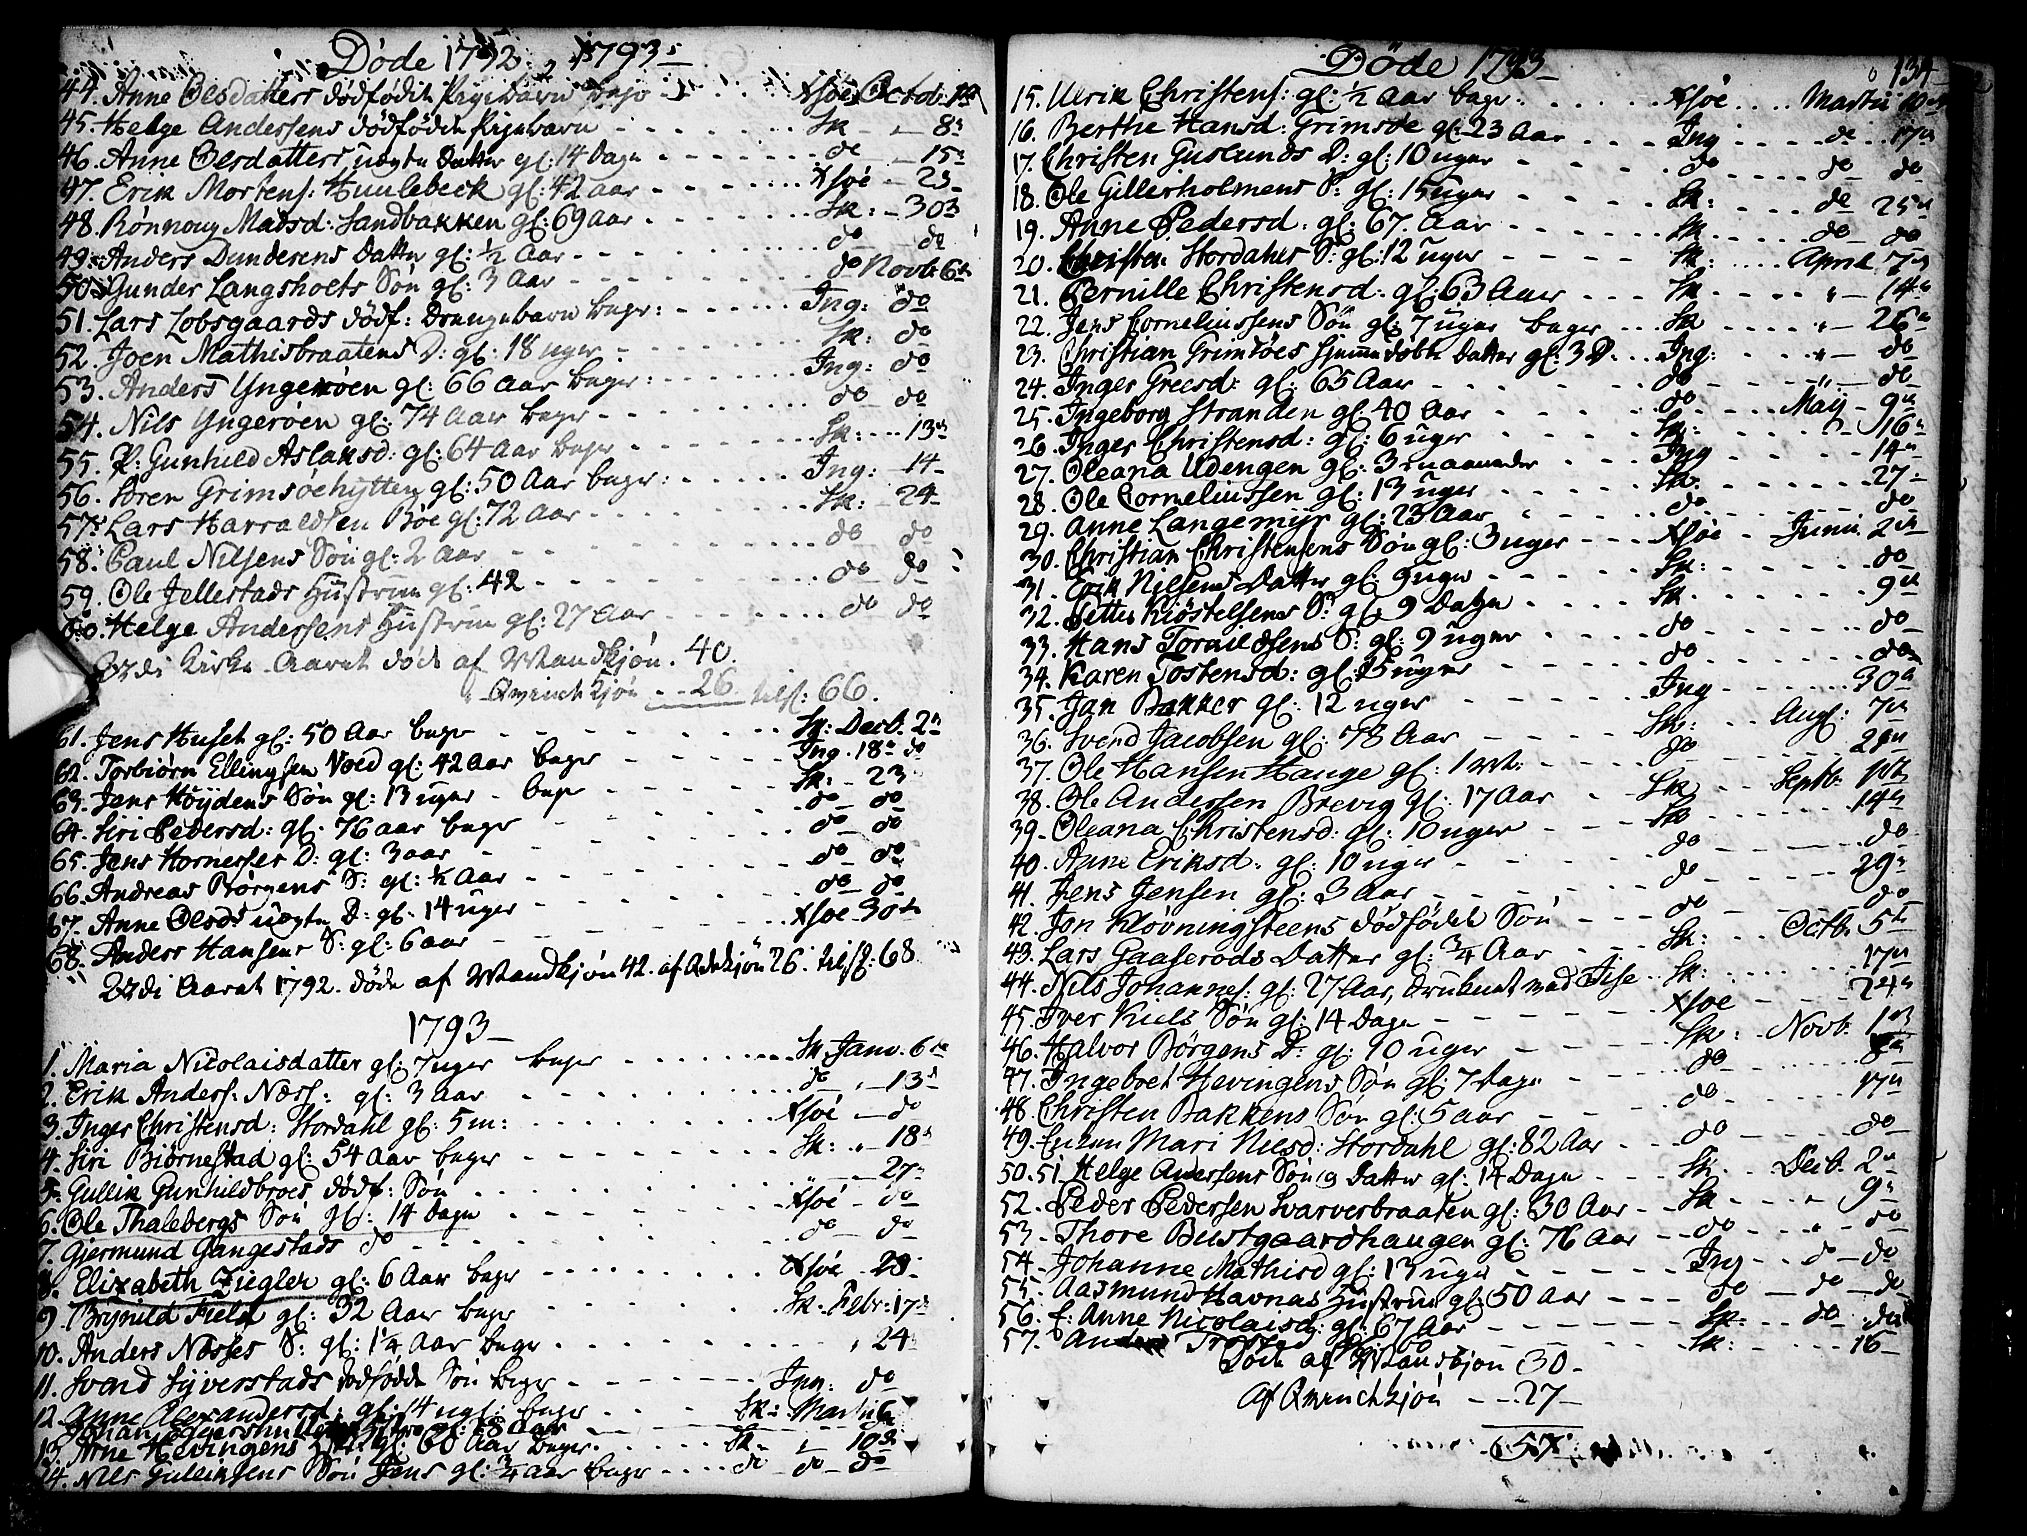 Døde 1792, 1793
44. Anne Olsdatters dødfødte Pigebarn Xsøe Octob. 1
45. Helge Andersens dødfødte Pigebarn Sk — 8
46. Anne Olsdatters uegte Datter gl: 14 Dage do — 15
47. Erik Mortens: Huulebeck gl: 42 aar Xsøe — 23
48. Rønnoug Madsd: Sandbakken gl: 69 aar Sk: — 30
49. Anders Dunderens Datter gl: ½ Aar do do
50. Gunder Langsholts Søn gl: 3 Aar do Novb: 6
51. Lars Lobsgaards dødf: Drengebarn begr: Ing: do
52. Joen Mathisbraatens D: gl: 18 uger Sk: do
53. Anders Yngerøen gl: 66 Aar begr: Ing: do
54. Nils Yngerøen gl: 74 Aar begr do do
55. Gunhild Aslaksd: gl: 64 Aar begr Sk: 13
56. Søren Grimsøehytten gl: 50 Aar begr: Ing: 14
57. Lars Harraldsen Bøe gl: 72 Aar Sk: 24
58. Paul Nilsens Søn gl: 2 Aar do do
59. Ole Jellestads Hustrue gl: 42 do do
60. Helge Andersens Hustrue gl: 27 Aar do do
di Kirke-Aaret døde af Mandkjøn. 40.
Qvindekjøn 26. tils: 66.
61. Jens Huset gl: 50 Aar begr Sk: Decb. 2
62. Torbiørn Ellingsen Voed gl: 42 Aar begr Ing. 18 do
63. Jens Høydens Søn gl: 13 uger begr Sk: 23
64. Siri Pedersd: gl: 76 aar begr do do
65. Jens Hornesses D: gl: 3 aar do do
66. Andreas Børgens S: gl: ½ Aar do do
67. Anne Olsds uegte D: gl: 14 uger do do
68. Anders Hansens S: gl: 6 aar Xsøe 30
di Aaret 1792. døde af Mandkjøn 42. af Qvkjøn 26. tils: 68.
1793
1. Maria Nicolaisdatter gl: 7 uger begr Sk Janv. 6
2. Erik Anders: Næss: gl: 3 aar do — 13
3. Inger Christensd: Stordahl gl: 5 m: Xsøe — do
4. Siri Biørnestad gl: 54 Aar begr Sk: 18
5. Gullik Gunhildbroes dødf: Søn 27
6. Ole Thalebergs Søn gl: 14 Dage Xsøe do
7. Gjermund Gangestads do do do
8. Elizabeth Ziegler gl: 6 Aar begr Xsøe 28
9. Brynild Field gl: 32 Aar begr Sk: Febr: 17
10. Anders Næsses S: gl: 1¼ Aar begr 24
11. Svend Syverstads dødfødte Søn begr Ing: do
12. Anne Alexandersd: gl: 14 begr Sk: Martii
Johan gl: 58 aar
13. Arne Hevingens gl: 60 Aar begr. Sk. 10
14. Nils Gulliksens Søn Jens gl: ¾ Aar begr do do do
Døde 1793
134
15. Ulrik Christens: gl: ½ Aar begr: Xsøe Martii 10
16. Berthe Hansd: Grimsøe gl: 23 Aar Ing do 17
17. Christen Guslunds D: gl: 10 uger do do do
18. Ole Gillerholmens S: gl: 15 uger Sk: do 25
19. Anne Pedersd: gl: 67. Aar Sk do do
20. Christen Stordahls S: gl: 12 uger Sk: April 7
21. Pernille Christensd: gl: 63 Aar Sk 14
22. Jens Corneliussens Søn gl: 7 uger begr Sk 26
23. Christian Grimsøes hjemmedøbte Datter gl: 3 D. Ing: do
24. Inger Greesd: gl: 65 Aar do do
25. Ingeborg Stranden gl: 40 Aar do Maij 9
26. Inger Christensd: gl: 6 uger Sk: 16
27. Oleana Udengen gl: 3 maaneder Ing 14
28. Ole Corneliussen gl: 13 uger Sk. 27
29. Anne Langemyr gl: 23 Aar do do
30. Christian Christensens Søn gl: 3 uger Xsøe Junii 2
31. Erik Nilsens Datter gl: 5 uger Sk: do
32. Petter Kiøstelsens S: gl: 9 Dage Sk 9
33. Hans Torkildsens S: gl: 9 uger do do
34. Karen Tostensd: gl: 15 uger do do
35. Jan Bakker gl: 12 uger Ing 30
36. Svend Jacobsen gl: 78 Aar Sk: Aug: 7
37. Ole Hansen Hauge gl: 1 do 21
38. Ole Andersen Brevig gl: 17 Aar Sk Septb. 1
39. Oleana Christensd: gl: 10 uger Sk 14
40. Anne Eriksd: gl: 10 uger do do
41. Jens Jensen gl: 3 Aar do 29
42. Jon Kløvningsteens dødfødde Søn do do
43. Lars Gaaserøds Datter gl: ¾ Aar Sk: Octb. 5
44. Nils Johannes: gl: 27 Aar, druknet med Sk: 17
45. Iver Kiels Søn gl: 14 Dage Xsøe 24
46. Halvor Børgens D: gl: 10 uger Sk: Novb. 1
47. Ingebret Hevingens Søn gl: 7 Dage do
48. Christen Bakkens Søn gl: 5 aar do 17
49. Enken Mari Nilsd: Stordahl gl: 82 Aar do do
50. 51. Helge Andersens Søn og Datter gl: 14 Dage Sk. Decb. 2
52. Peder Pedersen Svarverbraaten gl: 30 Aar Sk 9
53. Thore Bustgaardhaugen gl: 76 Aar do do
54. Johanne Mathisd gl: 13 uger Ing do do
55. Aasmund Havnas Hustrue gl: 50 Aar do do do
56. Anne Nicolaisd: gl: 67 Aar Sk: do do
57. Anders gl: 60 Sk: 16
Døde af Mandkjøn 30
af Qvindekjøn 27
57